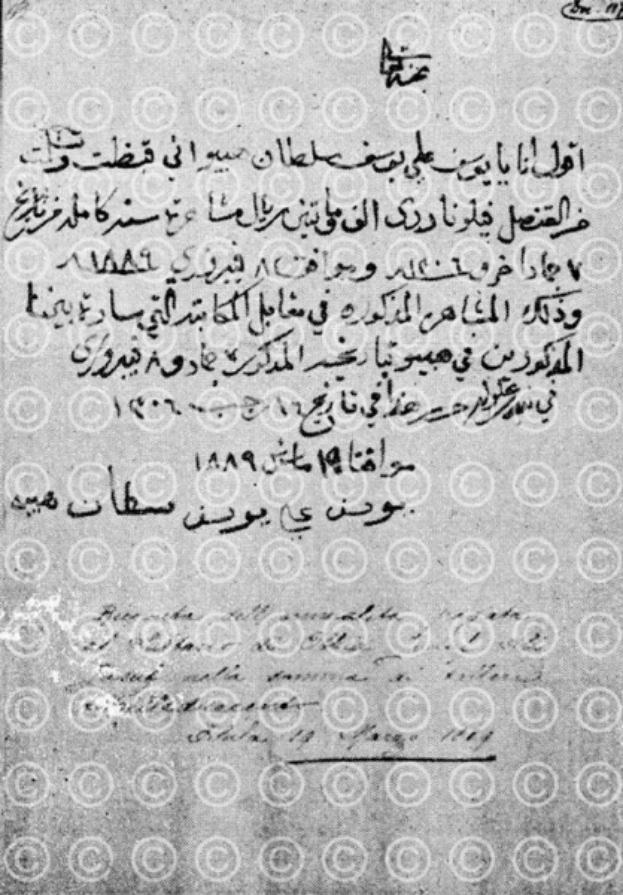 اقول انا يا يوسف علي يوسف سلطان هبيو اني قبضت وسلمت
من القنصل فيلوناردى الف و مايتين ريال مشاهرة سنة كامله من تاريخ
٧ جمادا خر ١٣٠٦ وموافق ٨ فبروري ١٨٨٩
وذلك المشاهره المذكوره في مقابل المكاتبة التي سارة بيننا
المذكورين في هبيو بتاريخه المذكور ٧ جماد و ٨ فبرواري
في حرر هذا في تاريخ ١٦ رجب ١٣٠٦
موافق ١٩ مارس ١٨٨٩
يوسف علي يوسف سلطان هبيه
Ricevuta dell' annualità pagata
al Sultano di Obbia Jusuf Ali
Jusuf nella somma di talleri
milleduecento
19 Marzo 1889